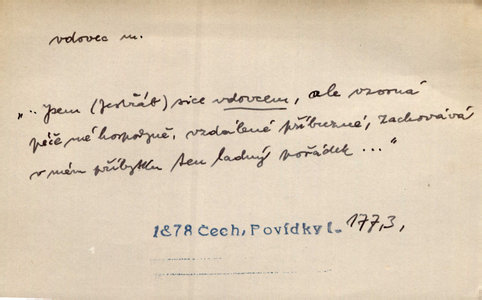 vdovec m.
„.. Jsem (Jestřáb) sice vdovcem, ale vzorná
péče mé hospodyně, vzdálené příbuzné, zachovává
v mém příbytku ten ladný pořádek ..."
1878 Čech, Povídky I. 177,3,